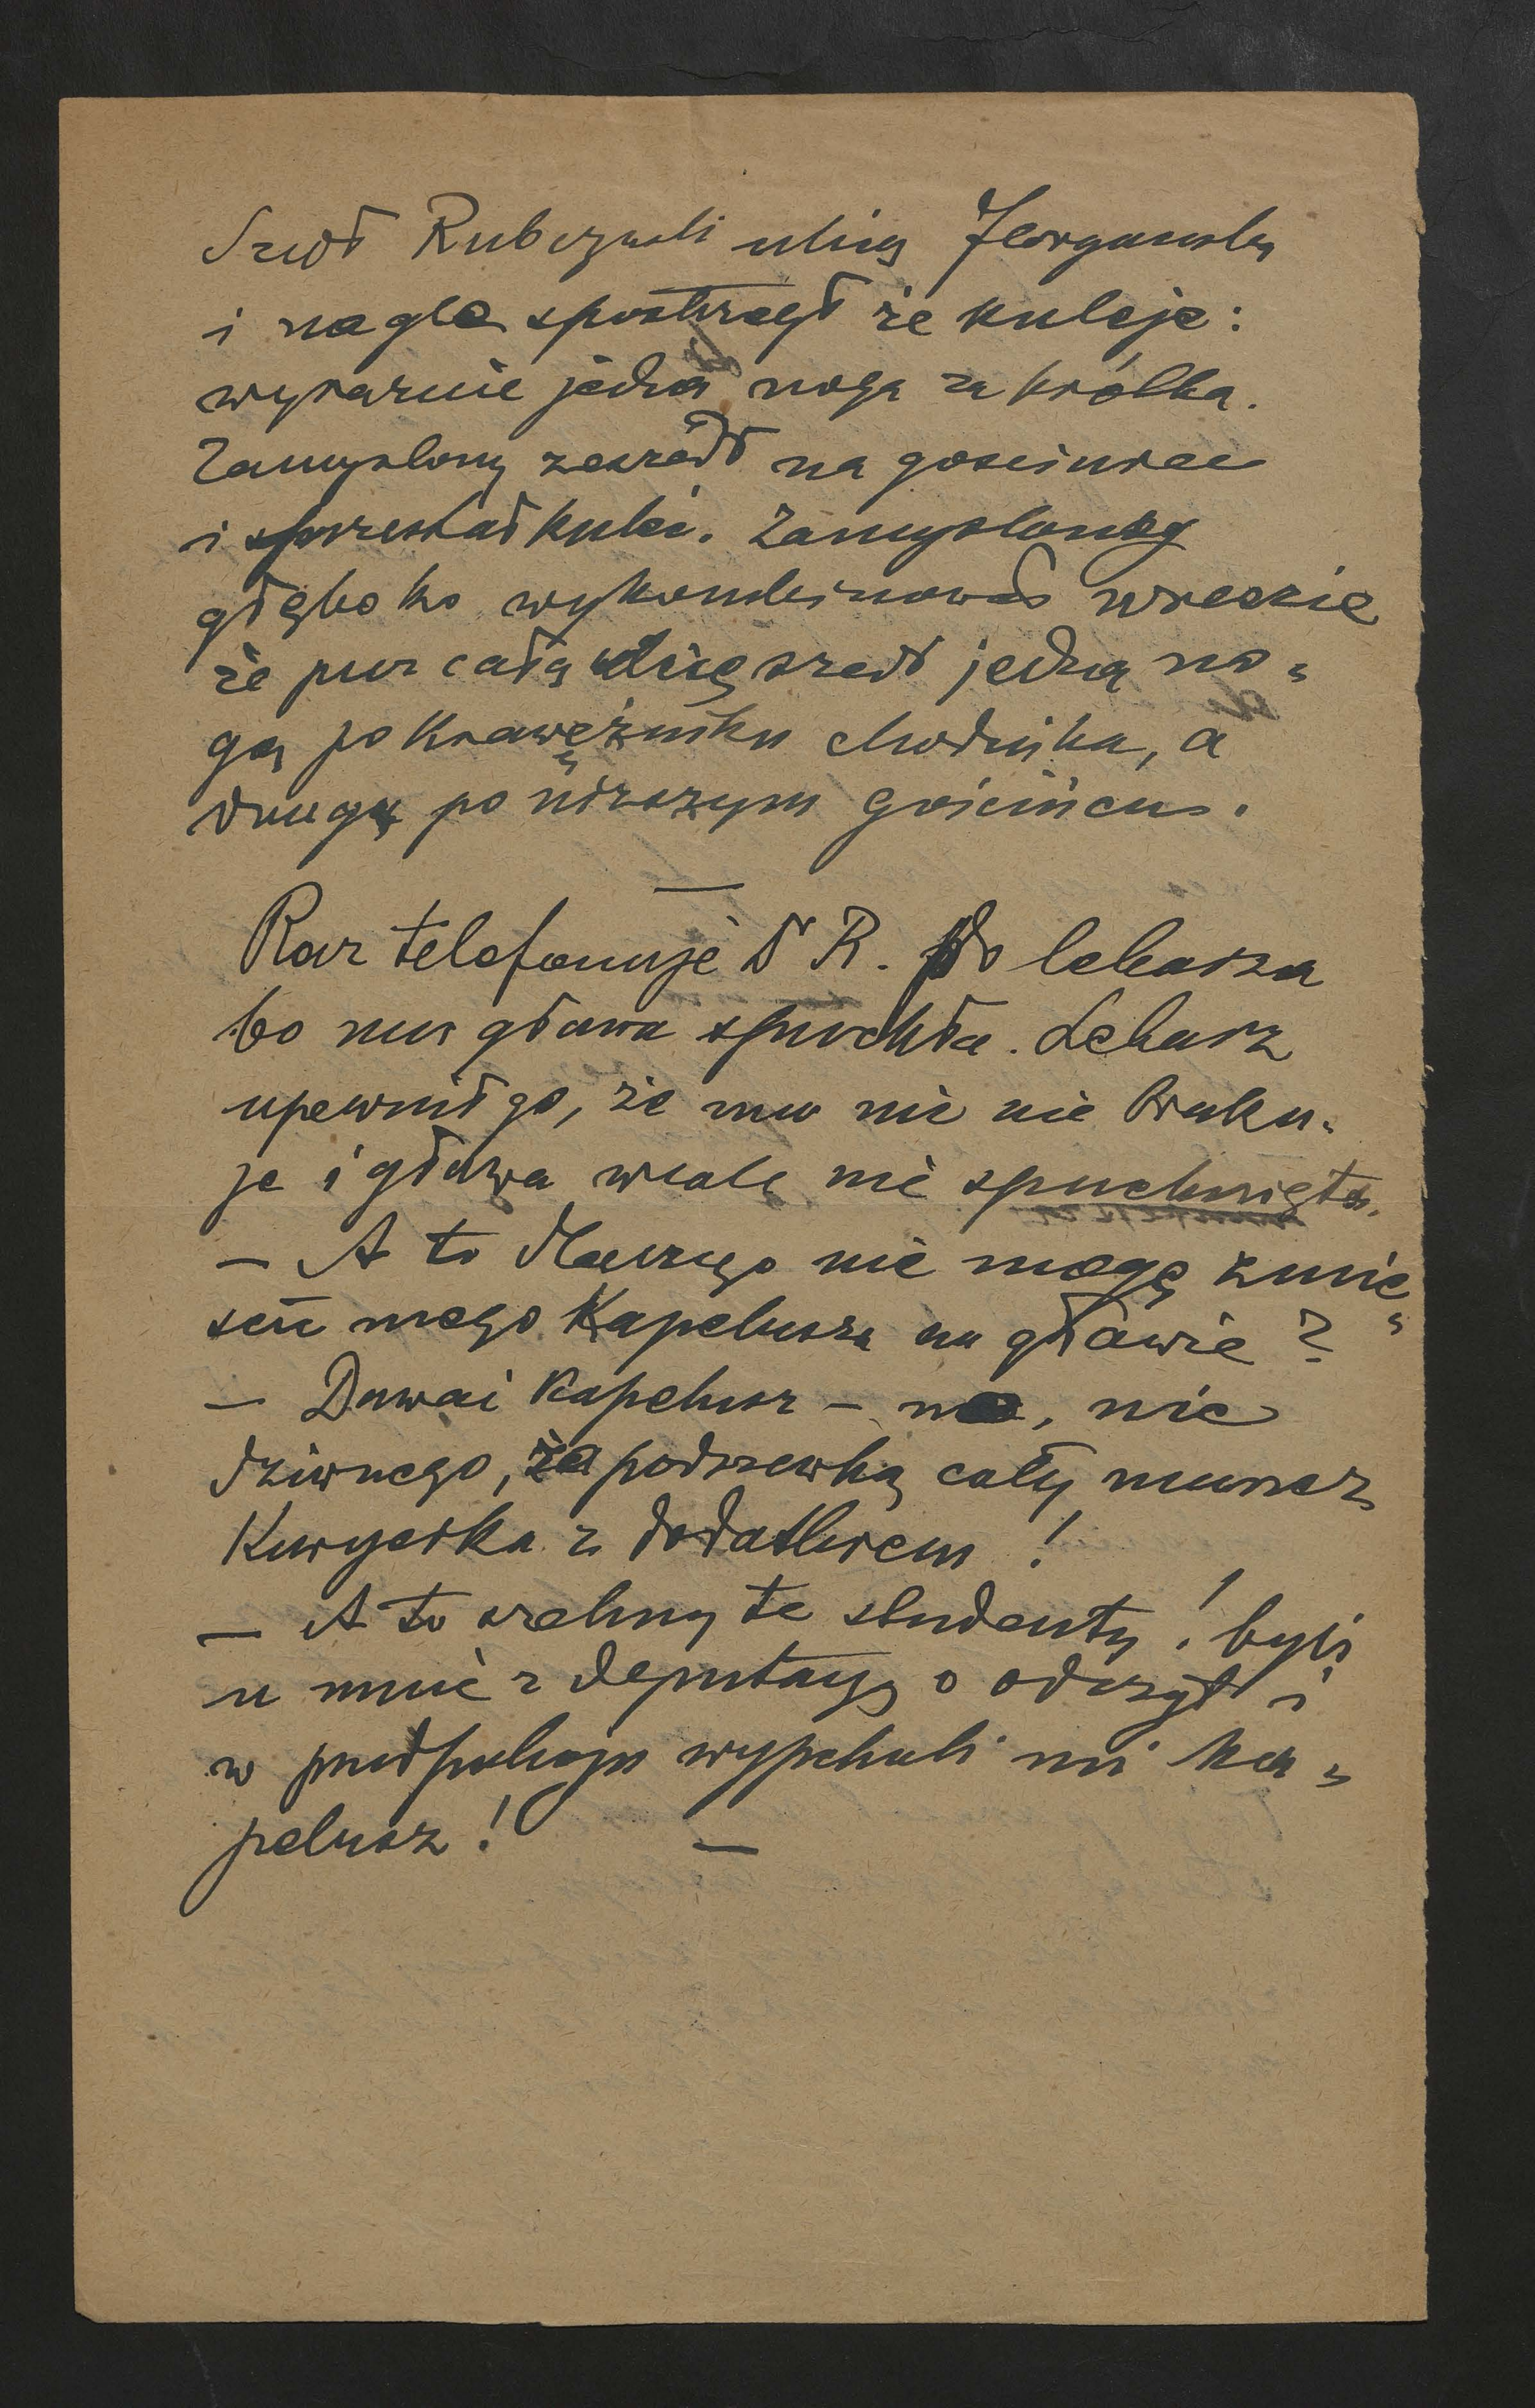 Szedł Rubczyński ulicą
i nagle spostrzegł że kuleje:
wyraźnie jedna noga za krótka.
Zamyślony zeszedł na gościniec
i przestał kuleć. Zamyślony
głęboko wykombinował wreszcie
że przez całą ulicę szedł jedną no-
gą po krawężniku chodnika, a
drugą po niższym gościńcu.
—
Raz telefonuje Dr R. do lekarza
bo mu głowa spuchła. Lekarz
upewnił go, że mu nic nie braku-
je i głowa wcale nie spuchnięta.
— A to dlaczego nie mogę zmie-
ścić mego kapelusza na głowie?
— Dawaj kapelusz – no, nic
dziwnego, za podszewką cały numer
Kuryerka z dodatkiem!
— A to szelmy te studenty! byli
u mnie z deputacyą o odczyt i
w przedpokoju wypchali mi ka-
pelusz! —